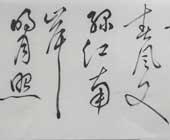 春风又
绿江南
岸
明月照